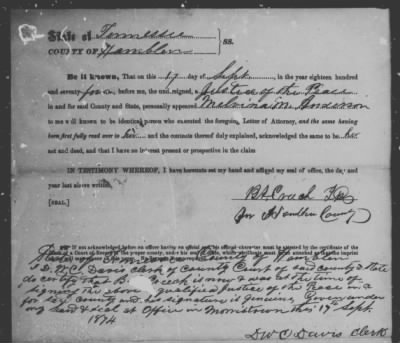 State of Tennessee
COUNTY OF Hamblen } SS.
Be it known, That on this 17 day of Sept. , in the year eighteen hundred
and seventy four , before me, the undersigned, a Justice of the Peace
in and for said County and State, personally appeared Melvina M. Anderson
to me well known to be identical person who executed the foregoing Letter of Attorney, and the same having
been first fully read over to her and the contents thereof duly explained, acknowledged the same to be her
act and deed, and that I have no interest present or prospective in the claim
IN TESTIMONY WHEREOF, I have hereunto set my hand and affixed my seal of office, the day and
year last above written,
[SEAL.] Couch
for Hamblen County
If not acknowledged before an officer having an official seal, his official character must be attested by the certificate of the
I D. W. C. Davis clerk of County Court of said county & State
do certify that B Couch is now & was at the time of
signing the above qualified Justice of the Peace in &
for said county and his signature is genuine, Given under
my hand & seal at Office in Morristown this 17 Sept.
1874
D W C Davis Clerk